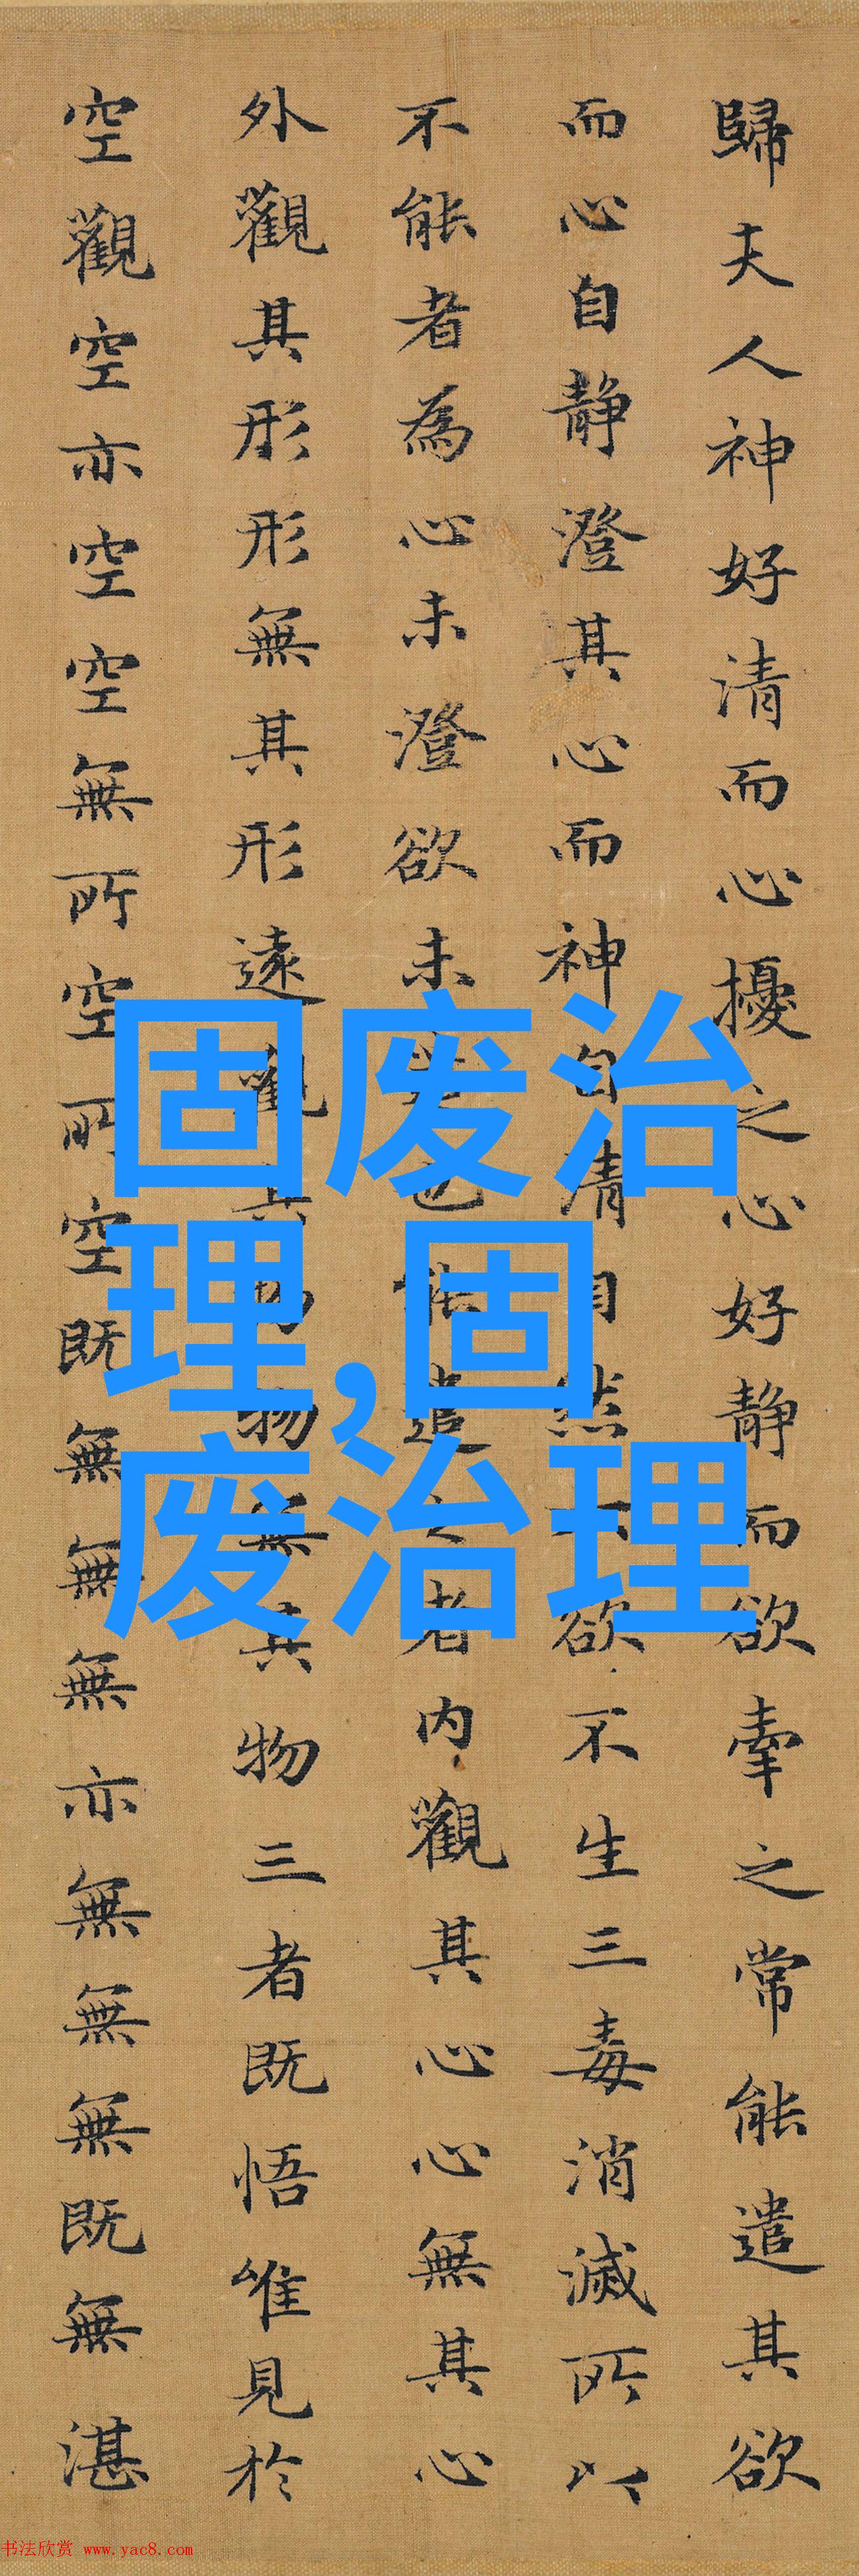 歸夫人神好清而心擾之心好静而欲牽之常能遣其欲
而心自静澄其心而神自清自然欲不生三毒消滅所以
不能者為心未澄欲未也能遣之者内觀其心心無其心
外觀其形形無其形遠觀其物物無其物三者既悟唯見於
空觀空亦空空無所空所空既無無無亦無無無既無湛
固废治
理,固
废治理
书法欣赏 www.yac8.com